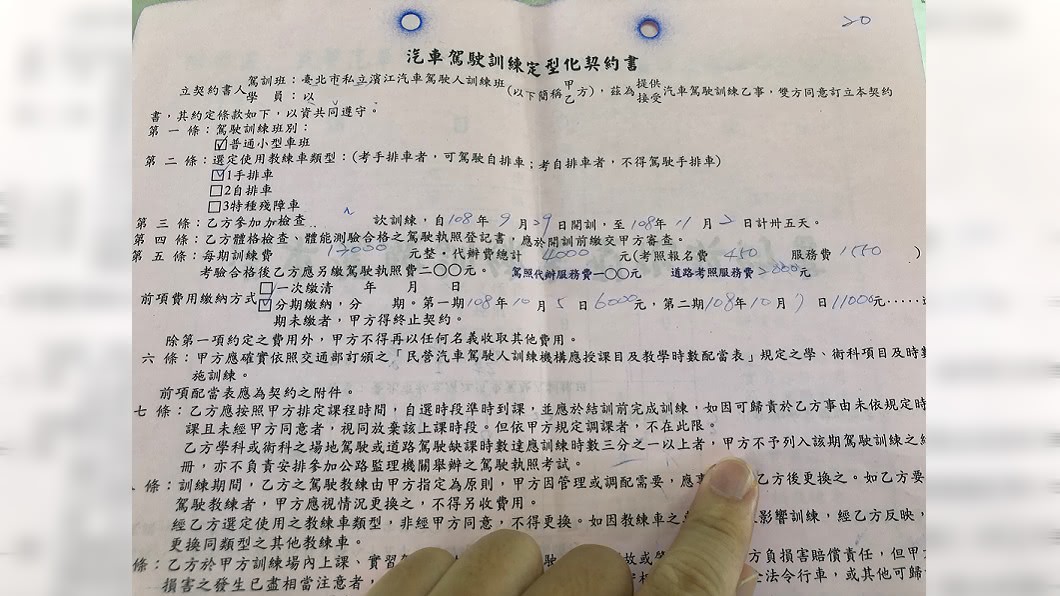 20
汽車駕駛訓練定型化契約書
立契約書人 駕訓班：臺北市私立濱江汽車駕駛人訓練班 (以下簡稱甲方)，茲為提供汽車駕駛訓練乙事，雙方同意訂立本契約
學　員：以 乙 接受
書，其約定條款如下，以資共同遵守。
第 一 條：駕駛訓練班別：
☑普通小型車班
第 二 條：選定使用教練車類型：(考手排車者，可駕駛自排車；考自排車者，不得駕駛手排車)
☑1手排車
☐2自排車
☐3特種殘障車
第 三 條：乙方參加 訓練，自108年 9 月29日開訓，至108年 11 月 2 日計卅五天。
第 四 條：乙方體格檢查、體能測驗合格之駕駛執照登記書，應於開訓前繳交甲方審查。
第 五 條：每期訓練費 元整，代辦費總計 4000 元(考照報名費 450 服務費 1550 )
考驗合格後乙方應另繳駕駛執照費二〇〇元。 駕照代辦服務費一〇〇元 道路考照服務費2000元
☐一次繳清　年　月　日
前項費用繳納方式☑分期繳納，分　期。第一期108年 10 月 5 日6000元，第二期108年10月 7 日11000元‥‥‥
期未繳者，甲方得終止契約。
除第一項約定之費用外，甲方不得再以任何名義收取其他費用。
六 條：甲方應確實依照交通部訂頒之「民營汽車駕駛人訓練機構應授課目及教學時數配當表」規定之學、術科項目及時數
施訓練。
前項配當表應為契約之附件。
七 條：乙方應按照甲方排定課程時間，自選時段準時到課，並應於結訓前完成訓練，如因可歸責於乙方事由未依規定時
課且未經甲方同意者，視同放棄該上課時段。但依甲方規定調課者，不在此限。
乙方學科或術科之場地駕駛或道路駕駛缺課時數達應訓練時數三分之一以上者，甲方不予列入該期駕駛訓練之
冊，亦不負責安排參加公路監理機關舉辦之駕駛執照考試。
條：訓練期間，乙方之駕駛教練由甲方指定為原則，甲方因管理或調配需要，應 乙方後更換之。如乙方要
駕駛教練者，甲方應視情況更換之，不得另收費用。
經乙方選定使用之教練車類型，非經甲方同意，不得更換。如因教練車之 影響訓練，經乙方反映，
更換同類型之其他教練車。
條：乙方於甲方訓練場內上課、實習 方負損害賠償責任，但甲
損害之發生已盡相當注意者， 法令行車，或其他可歸